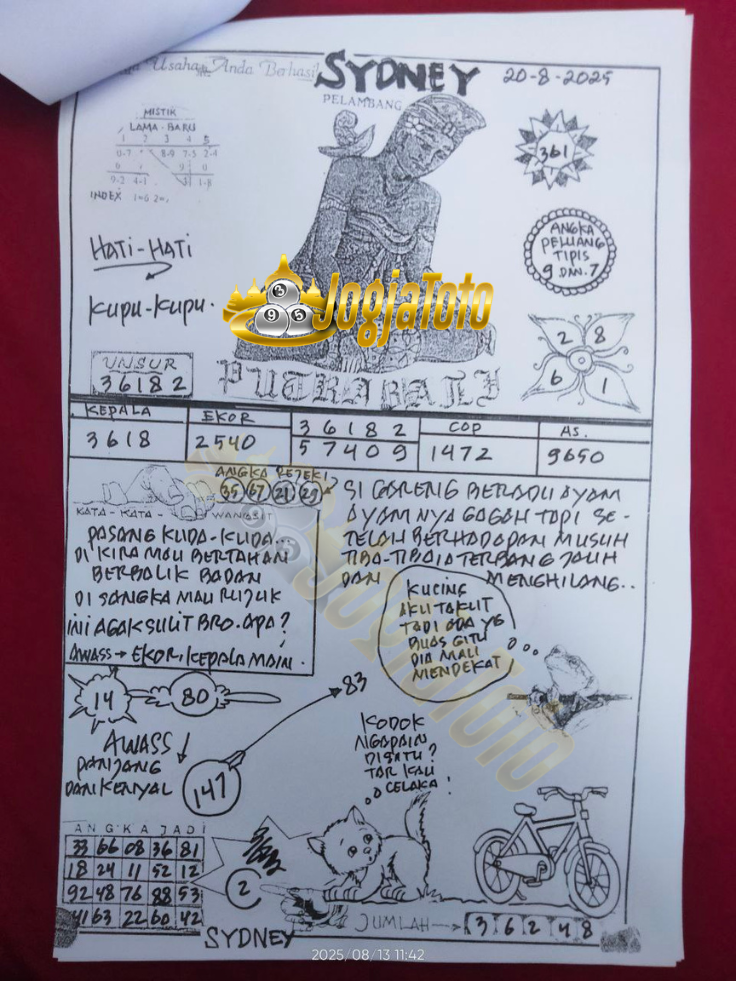 Usaha Anda Berhasil
SYDNEY
20-8-2025
PELAMBANG
MISTIK
LAMA - BARU
1 2 3 4 5
0-7 8-9 7-5 2-4
9-2 4-1 1-8
INDEX
361
HATI-HATI
KUPU-KUPU.
ANGKA
PELUANG
TIPIS
9 DAN. 7
JogjaToto
UNSUR
36182
2 8
6 1
PUTRA BALI
KEPALA
EKOR
3 6 1 8 2
COP
AS.
3618
2540
5 7 4 0 9
1472
9650
ANGKA REJEKI
35 67 21 29
KATA - KATA - WANGSIT
PASANG KUDA-KUDA...
DI KIRA MAU BERTAHAN
BERBALIK BADAN
DI SANGKA MAU RUJUK
INI AGAK SULIT BRO. APA?
AWASS → EKOR, KEPALA MAIN.
SI GARENG BERADU AYAM
AYAM NYA GAGAH TAPI SE-
TELAH BERHADAPAN MUSUH
TIBA-TIBA IA TERBANG JAUH
DAN MENGHILANG..
KUCING
AKU TAKUT
TADI ADA YG
BUAS GITU
DIA MAU
MENDEKAT
14
80
83
AWASS
PANJANG
DAN KENYAL
147
KODOK
NGAPAIN
DISATU?
TAR KAU
CELAKA!
ANGKA JADI
33 66 08 36 81
18 24 11 52 12
92 48 76 88 53
41 63 22 60 42
2
JUMLAH → 3 6 2 4 8
SYDNEY
2025/08/13 11:42